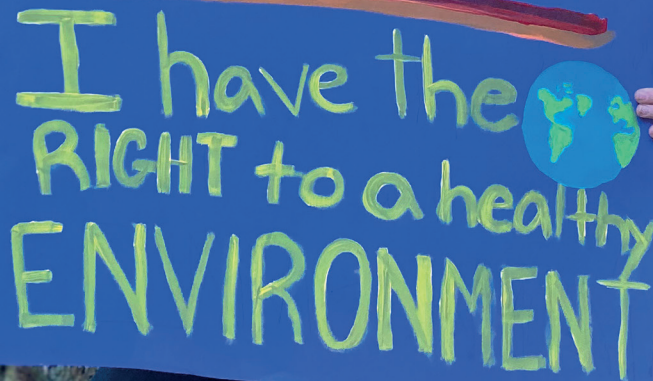 I have the
RIGHT to a healthy
ENVIRONMENT